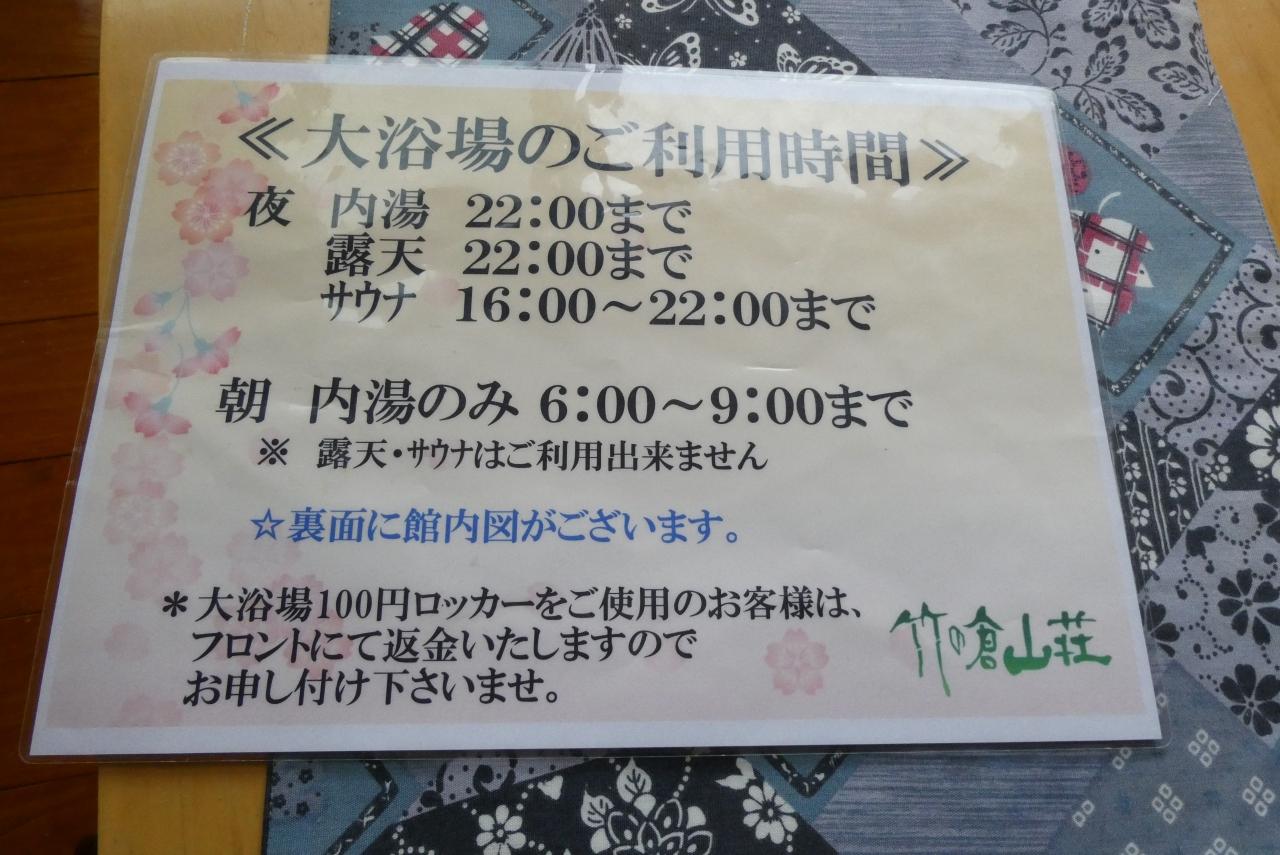 ≪大浴場のご利用時間≫
夜 内湯 22:00まで
露天 22:00まで
サウナ 16:00～22:00まで
朝 内湯のみ 6:00～9:00まで
※ 露天・サウナはご利用出来ません
☆裏面に館内図がございます。
＊大浴場100円ロッカーをご使用のお客様は、
フロントにて返金いたしますので
お申し付け下さいませ。
竹の倉山荘